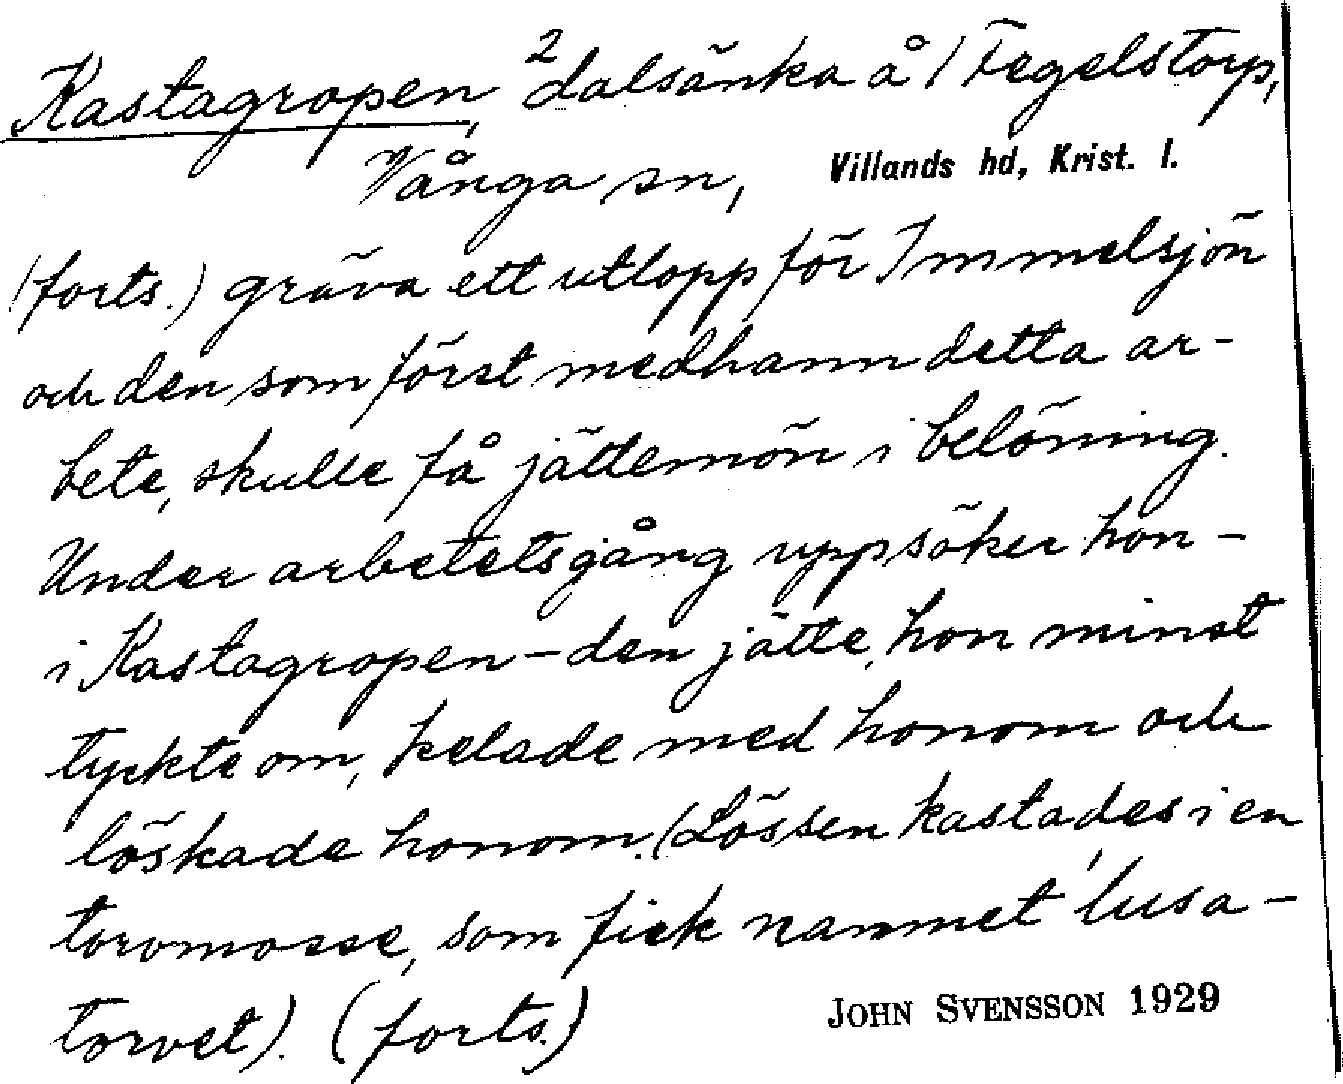 Kastagropen, 2 dalsänka å 1 Fegelstorp,
Vånga sn, Villands hd, Krist. l.
(forts.) gräva ett utlopp för Immelsjön
och den som först medhann detta ar-
bete, skulle få jättemön i belöning.
Under arbetets gång uppsöker hon -
i Kastagropen - den jätte, hon minst
tyckte om, kelade med honom och
löskade honom. (Lössen kastades i en
torvmosse, som fick namnet 'lusa-
torvet). (forts.)
JOHN SVENSSON 1929